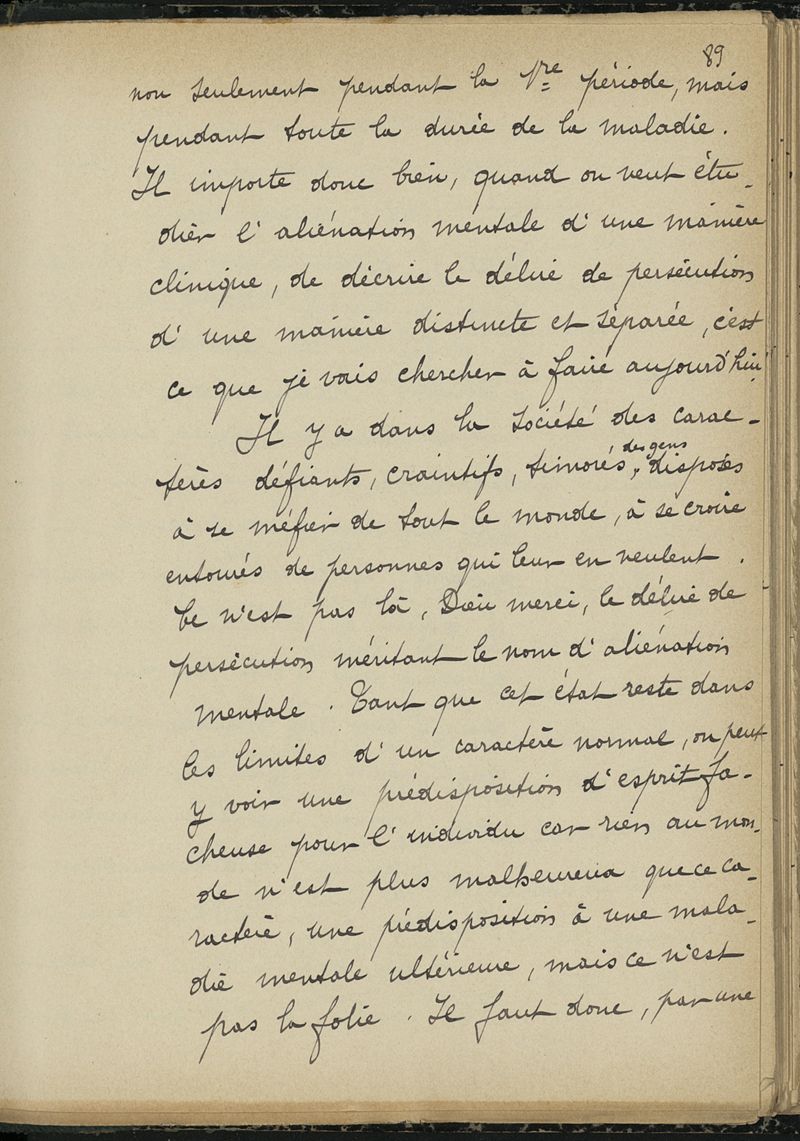 89
non seulement pendant la 1re période, mais
pendant toute la durée de la maladie.
Il importe donc bien, quand on veut étu-
dier l'aliénation mentale d'une manière
clinique, de décrire le délire de persécution
d'une manière distincte et séparée, c'est
ce que je vais chercher à faire aujourd'hui
Il y a dans la société des carac-
tères défiants, craintifs, timorés, des gens disposés
à se méfier de tout le monde, à se croire
entourés de personnes qui leur en veulent.
Ce n'est pas là, Dieu merci, le délire de
persécution méritant le nom d'aliénation
mentale. Tant que cet état reste dans
les limites d'un caractère normal, on peut
y voir une prédisposition d'esprit fâ-
cheuse pour l'individu car rien au mon-
de n'est plus malheureux que ce ca-
ractère, une prédisposition à une mala-
die mentale ultérieure, mais ce n'est
pas la folie. Il faut donc, par une